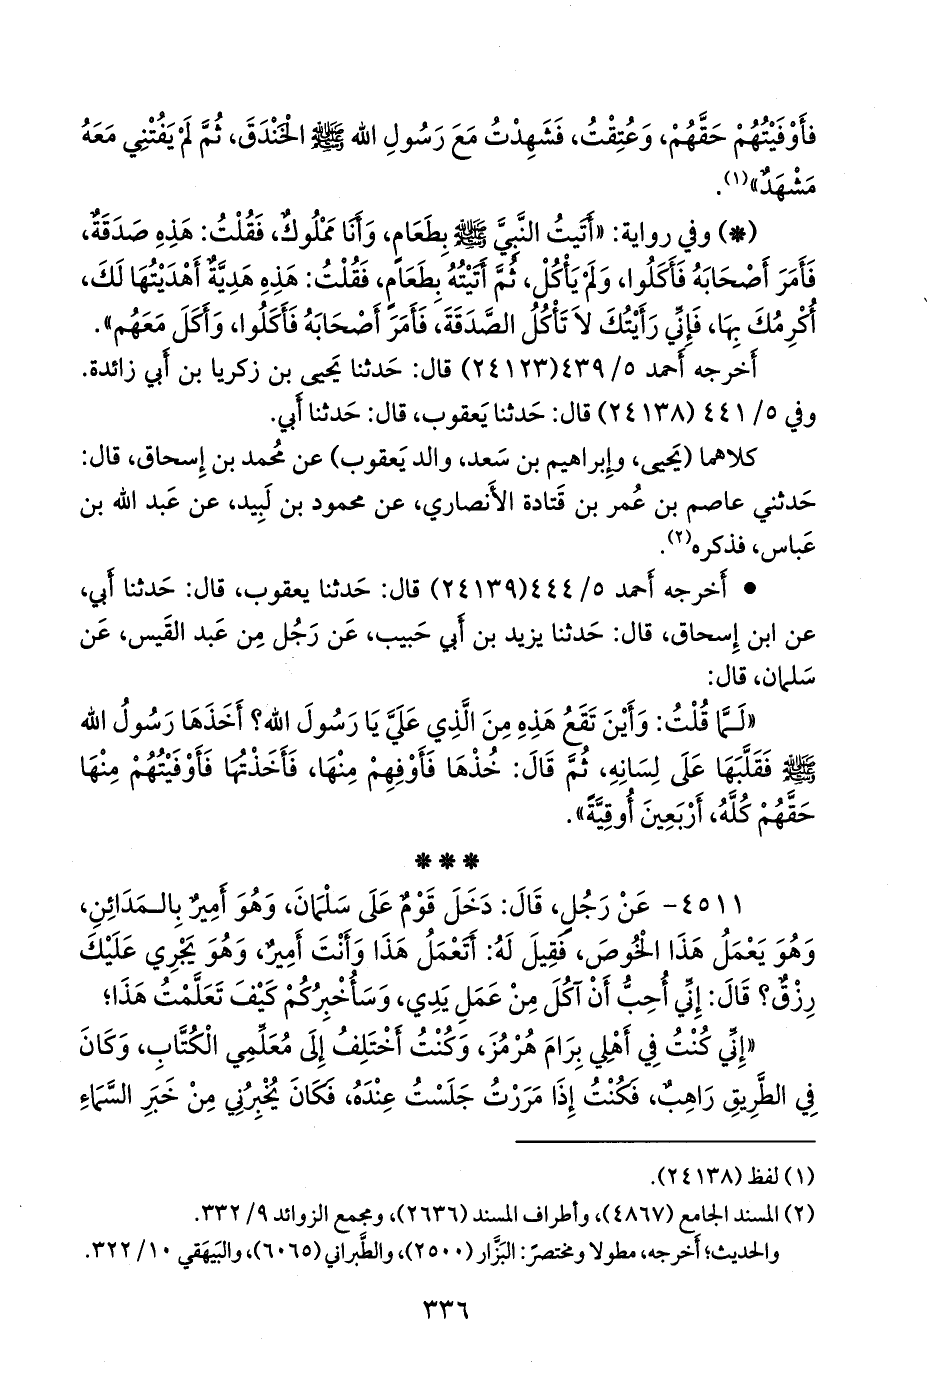 فَأَوْفَيْتُهُمْ حَقَّهُمْ، وَعُتِقْتُ، فَشَهِدْتُ مَعَ رَسُولِ الله ﷺ الْخَنْدَقَ، ثُمَّ لَمْ يَفُتْنِي مَعَهُ
مَشْهَدٌ»(١).
(*) وفي رواية: «أَتَيتُ النَّبِيَّ ﷺ بِطَعَامٍ، وَأَنَا مَمْلُوكٌ، فَقُلْتُ: هَذِهِ صَدَقَةٌ،
فَأَمَرَ أَصْحَابَهُ فَأَكَلُوا، وَلَمْ يَأْكُلْ، ثُمَّ أَتَيْتُهُ بِطَعَامٍ، فَقُلْتُ: هَذِهِ هَدِيَّةٌ أَهْدَيْتُهَا لَكَ،
أُكْرِمُكَ بِهَا، فَإِنِّي رَأَيْتُكَ لاَ تَأْكُلُ الصَّدَقَةَ، فَأَمَرَ أَصْحَابَهُ فَأَكَلُوا، وَأَكَلَ مَعَهُم».
أَخرجه أَحمد ٥/ ٤٣٩(٢٤١٢٣) قال: حَدثنا يَحيى بن زكريا بن أَبي زائدة.
وفي ٥/ ٤٤١ (٢٤١٣٨) قال: حَدثنا يَعقوب، قال: حَدثنا أَبي.
كلاهما (يَحيى، وإِبراهيم بن سَعد، والد يَعقوب) عن مُحمد بن إِسحاق، قال:
حَدثني عاصم بن عُمر بن قَتادة الأَنصاري، عن محمود بن لَبِيد، عن عَبد الله بن
عَباس، فذكره(٢).
• أَخرجه أَحمد ٥/ ٤٤٤(٢٤١٣٩) قال: حَدثنا يعقوب، قال: حَدثنا أَبي،
عن ابن إِسحاق، قال: حَدثنا يزيد بن أَبي حَبيب، عَن رَجُل مِن عَبد القَيس، عَن
سَلمان، قال:
«لَـمَّا قُلْتُ: وَأَيْنَ تَقَعُ هَذِهِ مِنَ الَّذِي عَلَيَّ يَا رَسُولَ الله؟ أَخَذَهَا رَسُولُ الله
ﷺ فَقَلَّبَهَا عَلَى لِسَانِهِ، ثُمَّ قَالَ: خُذْهَا فَأَوْفِهِمْ مِنْهَا، فَأَخَذْتُهَا فَأَوْفَيْتُهُمْ مِنْهَا
حَقَّهُمْ كُلَّهُ، أَرْبَعِينَ أُوقِيَّةً».
* * *
٤٥١١- عَنْ رَجُلٍ، قَالَ: دَخَلَ قَوْمٌ عَلَى سَلْمَانَ، وَهُوَ أَمِيرٌ بِالـمَدَائِنِ،
وَهُوَ يَعْمَلُ هَذَا الْخُوصَ، فَقِيلَ لَهُ: أَتَعْمَلُ هَذَا وَأَنْتَ أَمِيرٌ، وَهُوَ يَجْرِي عَلَيْكَ
رِزْقٌ؟ قَالَ: إِنِّي أُحِبُّ أَنْ آكُلَ مِنْ عَمَلِ يَدِي، وَسَأُخْبِرُكُمْ كَيْفَ تَعَلَّمْتُ هَذَا؛
«إِنِّي كُنْتُ فِي أَهْلِي بِرَامَ هُرْمُزَ، وَكُنْتُ أَخْتَلِفُ إِلَى مُعَلِّمِي الْكُتَّابِ، وَكَانَ
فِي الطَّرِيقِ رَاهِبٌ، فَكُنْتُ إِذَا مَرَرْتُ جَلَسْتُ عِنْدَهُ، فَكَانَ يُخْبِرُنِي مِنْ خَبَرِ السَّمَاءِ
(١) لفظ (٢٤١٣٨).
(٢) المسند الجامع (٤٨٦٧)، وأطراف المسند (٢٦٣٦)، ومجمع الزوائد ٩/ ٣٣٢.
والحديث؛ أَخرجه، مطولا ومختصرً: البَزَّار (٢٥٠٠)، والطَّبراني (٦٠٦٥)، والبَيهَقي ١٠/ ٣٢٢.
٣٣٦